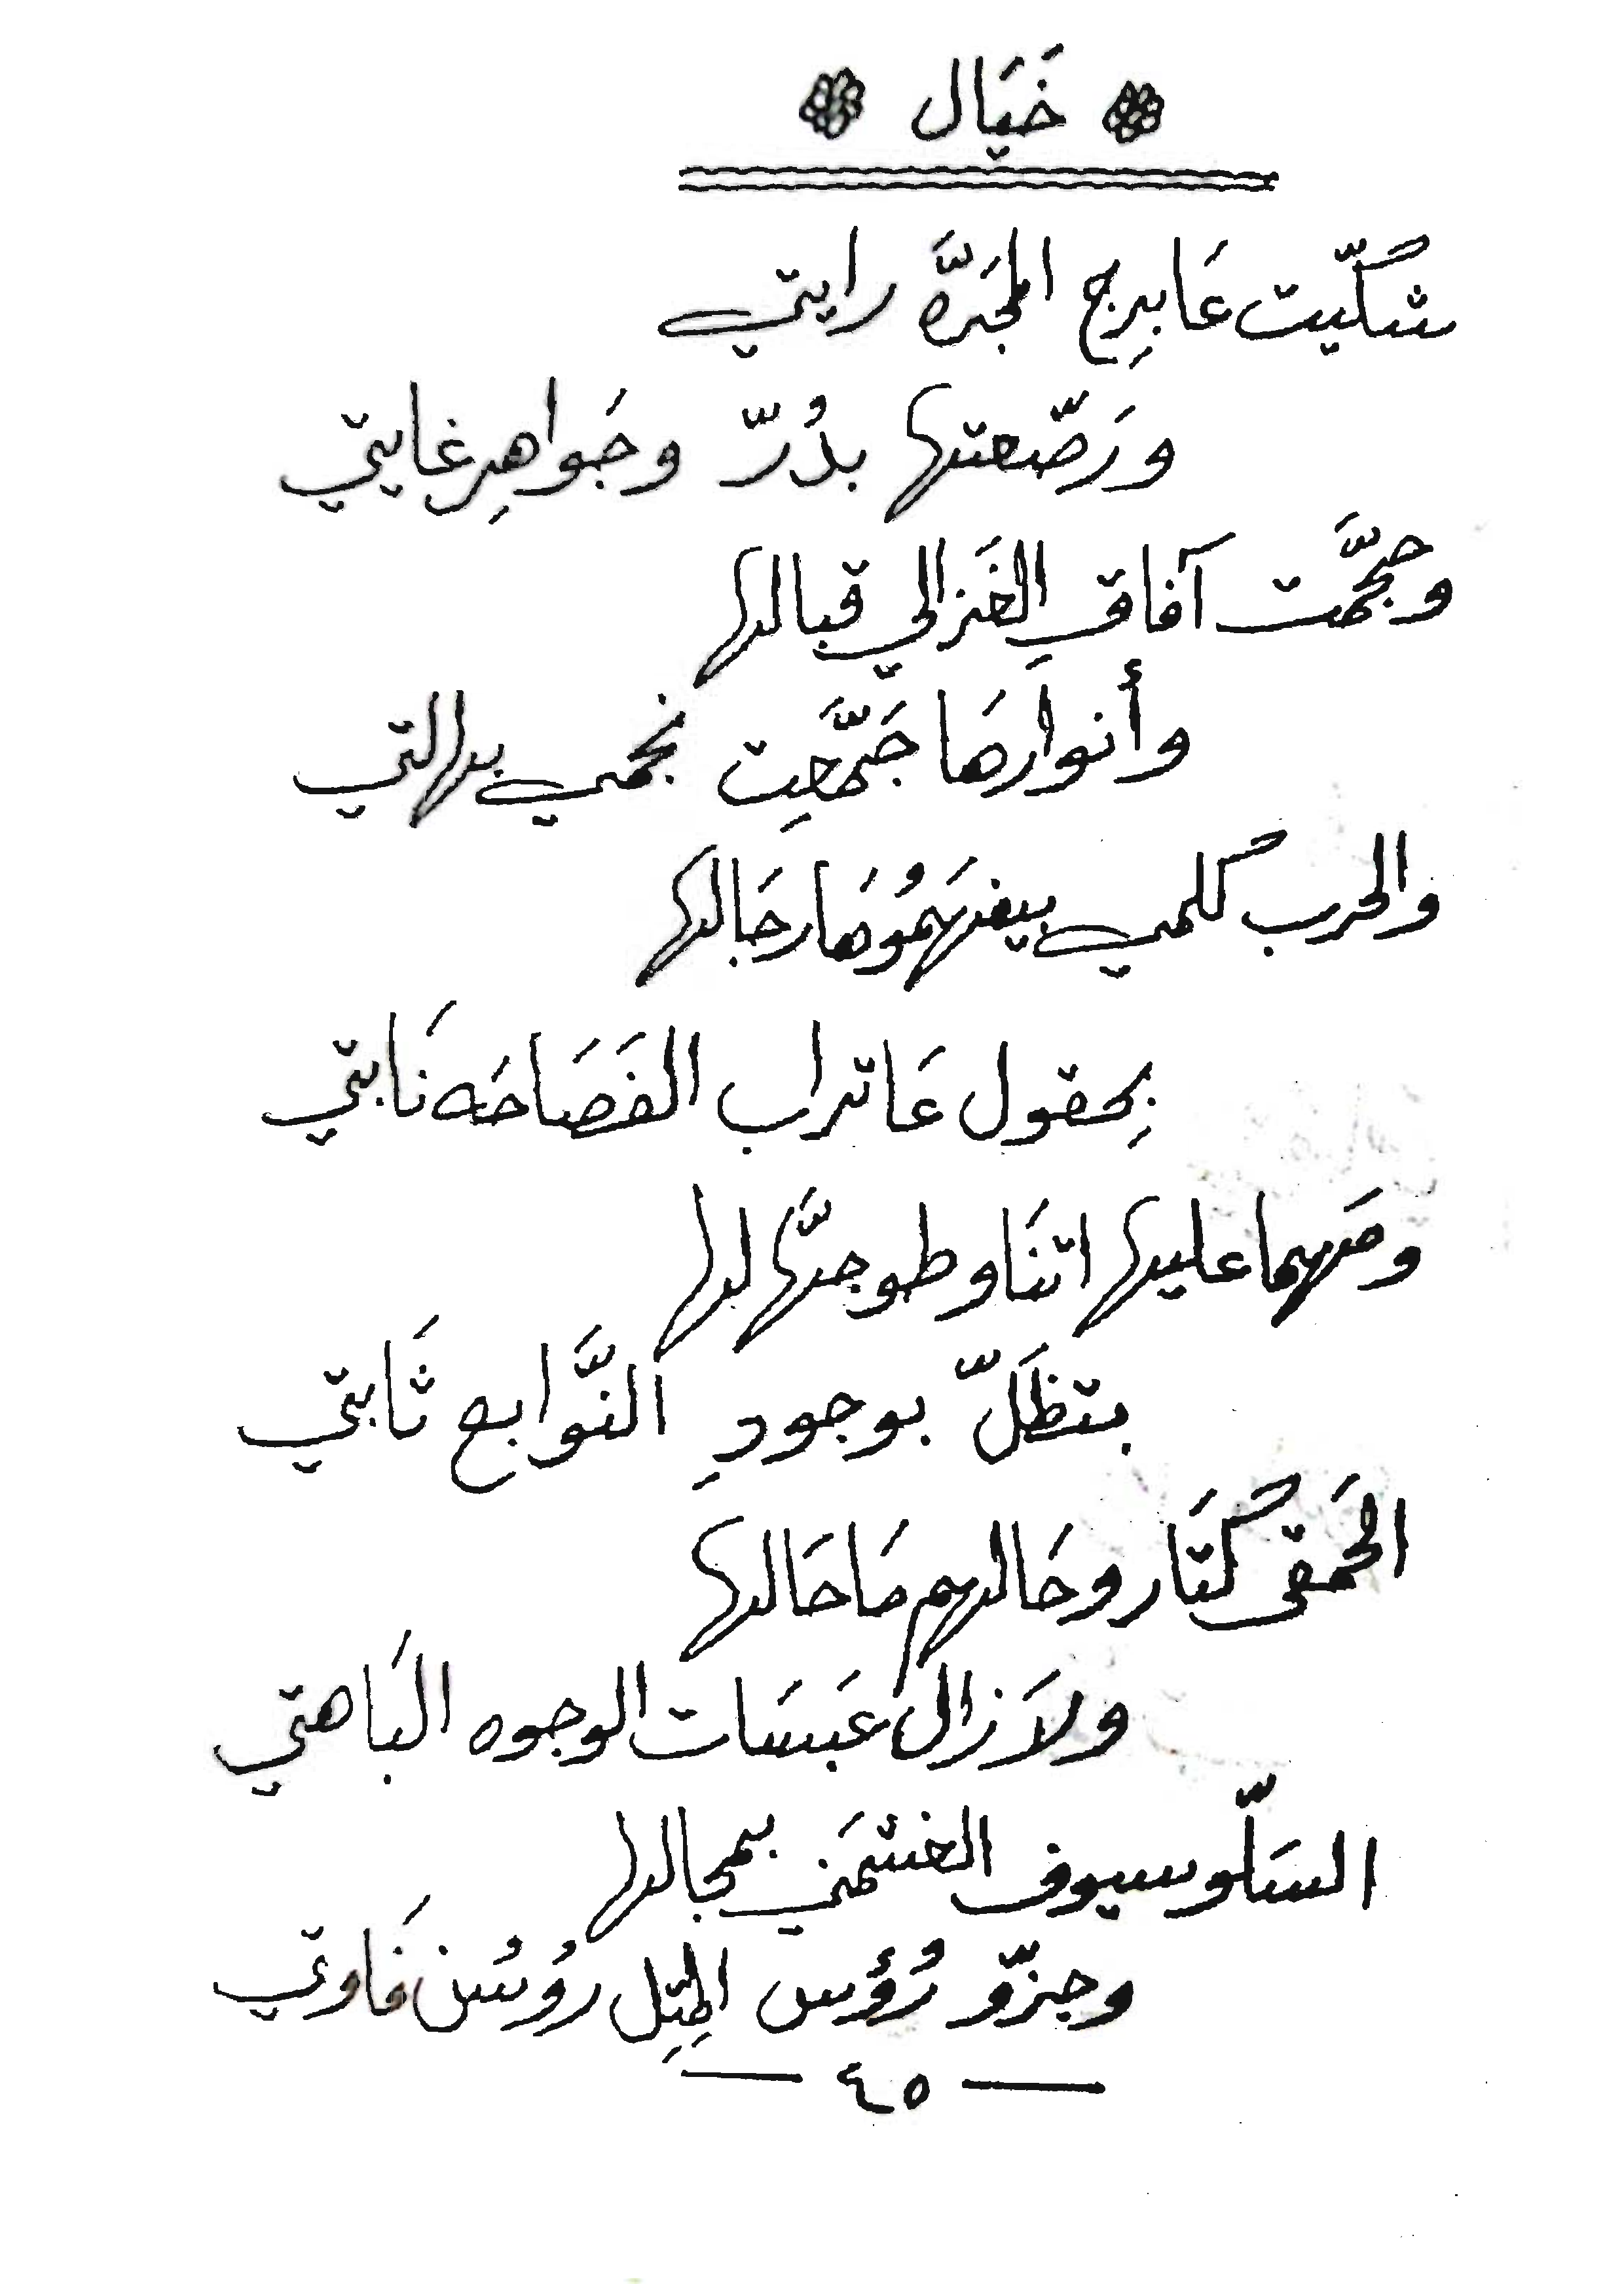 خَيَال
شكّيت عَابرِج المجَرَّه رايتي
ورَصّعتها بدُرّ وجَواهرِ غايتي
وحجَّمت آفاقِ الغَزالي قبالها
وأنوارَهَا جَمَّعَتِ نجمي بهالتي
والحرب كلمي بيفهَمُوهَا رجَالها
بِحقول عَاتراب الفَصَاحَه نَابتي
ومَهما عليها اتنَاوطو جنّها لها
بتظَلّ بوجودِ النَّوابع ثَابتي
الحَمقى كتَار وحَالهم مَا حَالها
ولاَ زال عَبسَات الوجوه البَاهتي
السَلّو سيوف الغشمَني بمجالها
وجزّو رُؤس المِتِل رُوسُن فَاوتي
— ٤٥ —